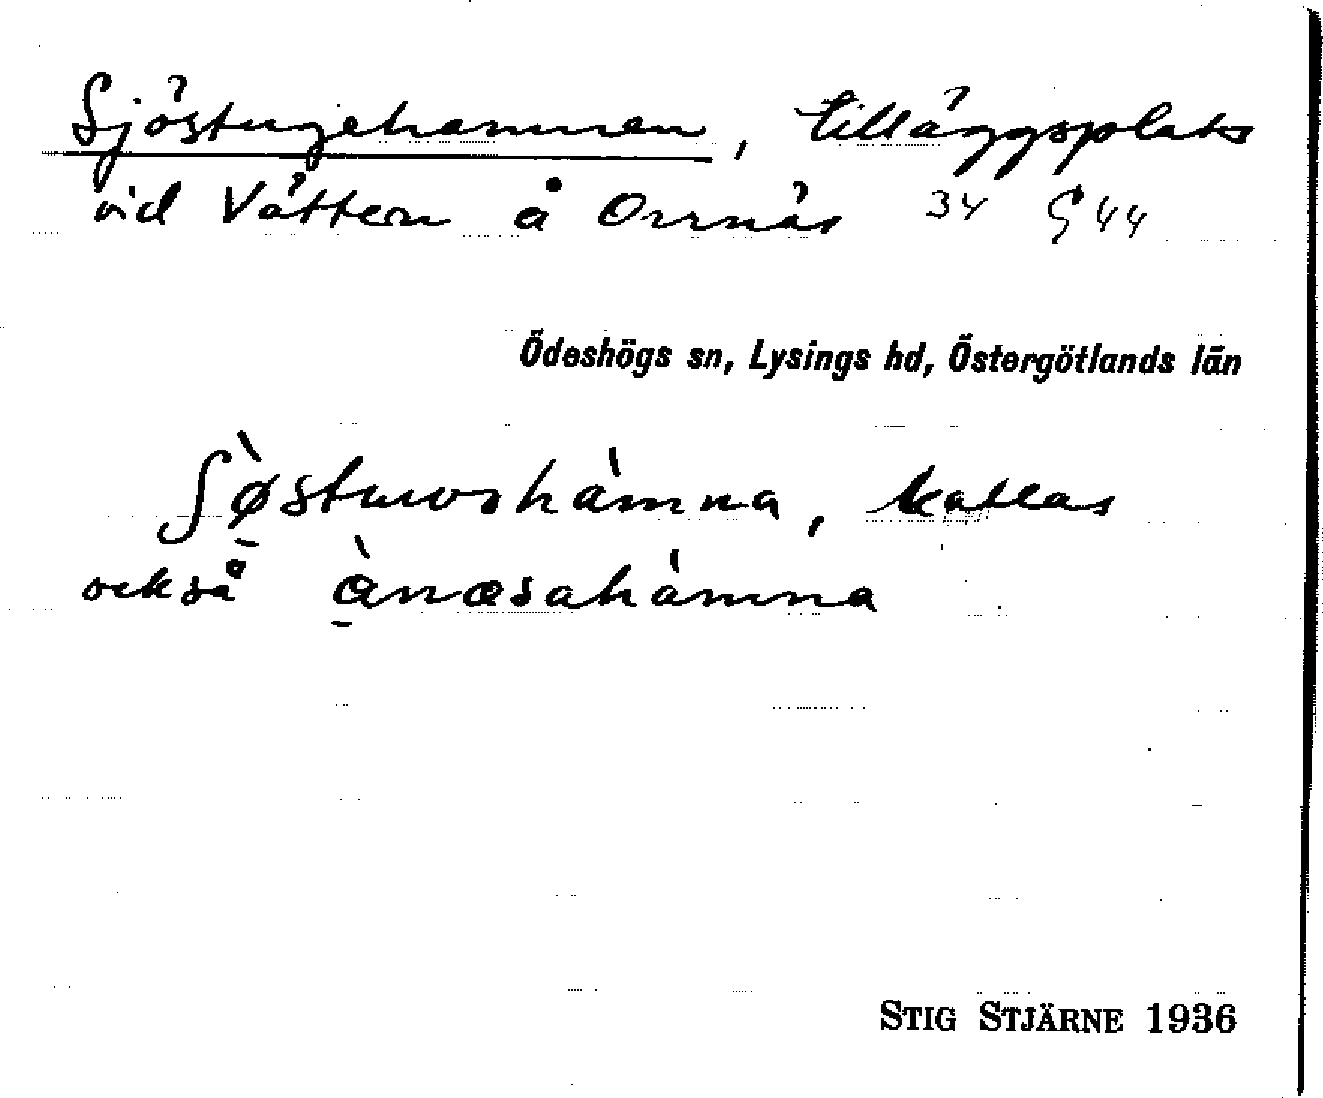 Sjöstugehamnen, tilläggsplats
vid Vättern å Orrnäs 34 G 44
Ödeshögs sn, Lysings hd, Östergötlands län
också
kallas
STIG STJÄRNE 1936